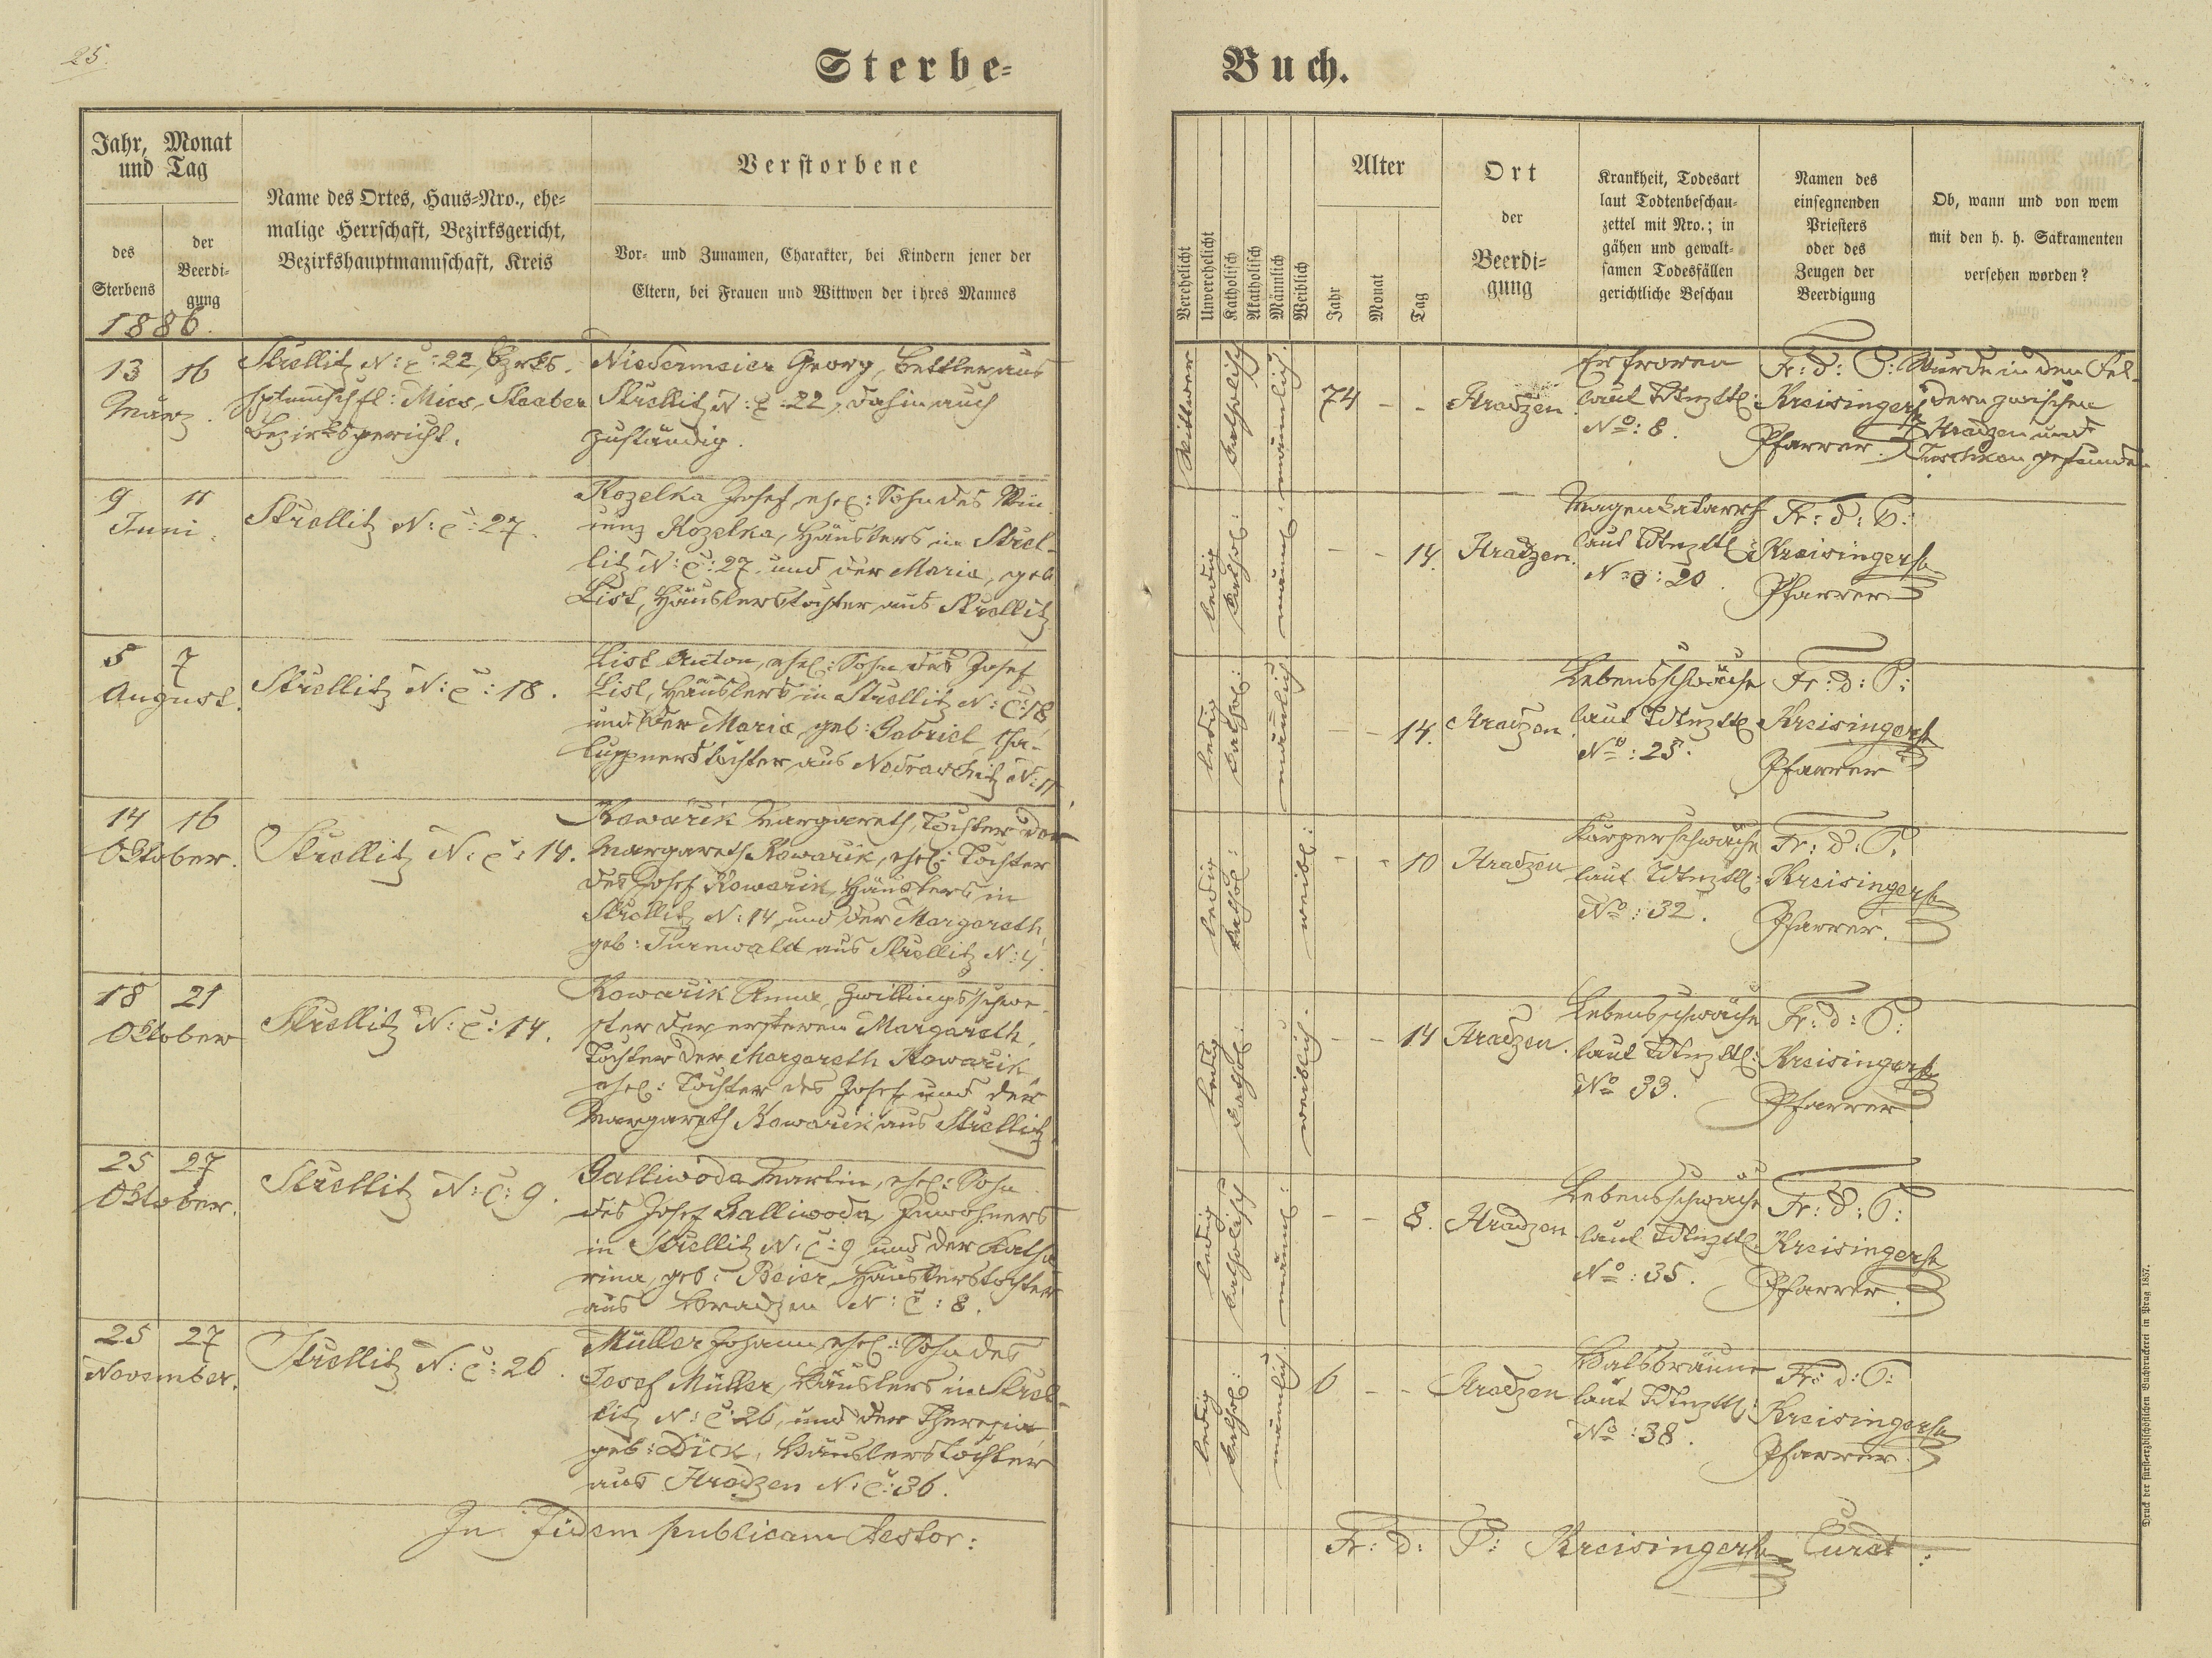 25.
Sterbe-
Buch.
Jahr, Monat
und Tag
des
Sterbens
der
Beerdi-
gung
Name des Ortes, Haus-Nro., ehe-
malige Herrschaft, Bezirksgericht,
Bezirkshauptmannschaft, Kreis
Verstorbene
Vor- und Zunamen, Charakter, bei Kindern jener der
Eltern, bei Frauen und Wittwen der ihres Mannes
Verehelicht
Unverehelicht
Katholisch
Akatholisch
Männlich
Weiblich
Alter
Jahr
Monat
Tag
Ort
der
Beerdi-
gung
Krankheit, Todesart
laut Todtenbeschau-
zettel mit Nro.; in
gähen und gewalt-
samen Todesfällen
gerichtliche Beschau
Namen des
einsegnenden
Priesters
oder des
Zeugen der
Beerdigung
Ob, wann und von wem
mit den h. h. Sakramenten
versehen worden?
1886.
13 16
März.
Strellitz N: č: 22, Bzrks.
hptmschft: Mies, Staaber
Bezirksgericht.
Niedermeier Georg, Bettler aus
Strellitz N: č: 22, dahin auch
zuständig.
Wittwer
katholisch
männlich.
74 - -
Hradzen
Erfroren
laut Tdtnzttl:
No: 8.
Fr: d: P:
Kreisinger
Pfarrer.
Wurde in den Fel-
dern zwischen
Hradzen und
Tuschkau gefunden
9 11
Juni.
Strellitz N: č: 27.
Kozelka Josef, ehel: Sohn des Win-
zenz Kozelka, Häuslers in Strel-
litz N: č: 27. und der Maria, geb
List, Häuslerstochter aus Strellitz
ledig
kathol:
männl:
- - 14.
Hradzen.
Magenkatarrh
laut Tdtnzttl:
No: 20.
Fr: d: P:
Kreisinger
Pfarrer
5 7
August.
Strellitz N: č: 18.
List Anton, ehel: Sohn des Josef
List, Häuslers in Strellitz N: č: 18
und der Maria, geb: Gabriel, Cha-
luppnerstochter aus Nedraschitz N: 11
ledig
kathol:
männlich
- - 14.
Hradzen.
Lebensschwäche
laut Tdtnzttl
No: 25.
Fr: d: P:
Kreisinger
Pfarrer
14 16
Oktober.
Strellitz N: č: 14.
Kowarik Margareth, Tochter der
Margareth Kowarik, ehel: Tochter
des Josef Kowarik, Häuslers in
Strellitz N: 14, und der Margareth,
geb: Turnwald aus Strellitz N: 4.
ledig
kathol:
weibl:
- - 10
Hradzen
Körperschwäche
laut Tdtnzttl:
No: 32.
Fr: d: P:
Kreisinger
Pfarrer.
18 21
Oktober
Strellitz N: č: 14.
Kowarik Anna, Zwillingsschwe-
ster der ersteren Margareth,
Tochter der Margareth Kowarik
ehel: Tochter des Josef und der
Margareth Kowarik aus Strellitz
ledig
kathol:
weiblich.
- - 14
Hradzen.
Lebensschwäche
laut Tdtnzttl:
No 33.
Fr: d: P:
Kreisinger
Pfarrer
25 27
Oktober.
Strellitz N: č: 9.
Galliwoda Martin, ehel: Sohn
des Josef Galliwoda, Inwohners
in Strellitz N: č: 9 und der Katha
rina, geb: Beier, Häuslerstochter
aus Hradzen N: č: 8.
ledig
katholisch
männl:
- - 8.
Hradzen
Lebensschwäche
laut Tdtnzttl.
No: 35.
Fr: d: P:
Kreisinger
Pfarrer.
25 27
November.
Strellitz N: č: 26.
Müller Johann, ehel: Sohn des
Josef Müller, Häuslers in Strel-
litz N: č: 26, und der Theresia
geb: Dick, Häuslerstochter
aus Hradzen N: č: 36.
ledig
kathol:
männlich
6 - -
Hradzen
Halsbräune
laut Tdtnzttl:
No: 38.
Fr: d: P:
Kreisinger
Pfarrer.
In fidem publicam testor:
Fr: d: P: Kreisinger Curat:
Druck der fürsterzbischöflichen Buchdruckerei in Prag 1857.